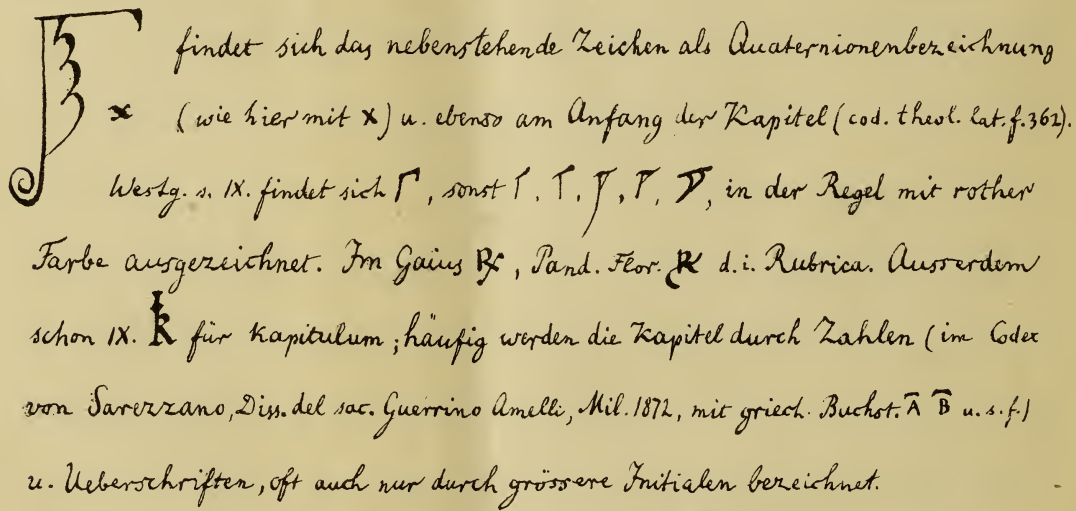 findet sich das nebenstehende Zeichen als Quaternionenbezeichnung
x (wie hier mit x) u. ebenso am Anfang der Kapitel (cod. theol. lat. f. 362).
Westg. s. IX. findet sich Γ, sonst Γ, Γ, Γ, Γ, Γ, in der Regel mit rother
Farbe ausgezeichnet. Im Gaius R, Pand. Flor. R d. i. Rubrica. Ausserdem
schon IX. k für Kapitulum; häufig werden die Kapitel durch Zahlen (im Codex
von Sarezzano, Diss. del sac. Guerrino Amelli, Mil. 1872, mit griech. Buchst. Α̅ Β̅ u. s. f.)
u. Ueberschriften, oft auch nur durch grössere Initialen bezeichnet.